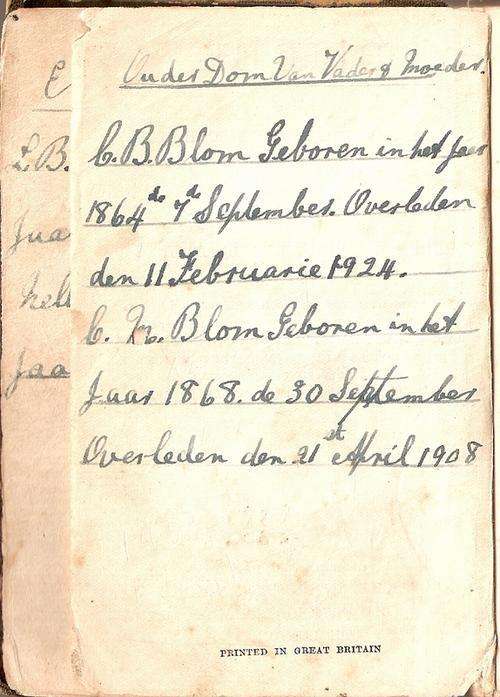 Ouder Dom Van Vader & Moeder.
C. B. Blom Geboren in het Jaar
1864 de 7 de September. Overleden
den 11 Februarie 1924.
C. M. Blom Geboren in het
Jaar 1868. de 30 September
Overleden den 21 st April 1908
PRINTED IN GREAT BRITAIN
E
L. B.
Jaa